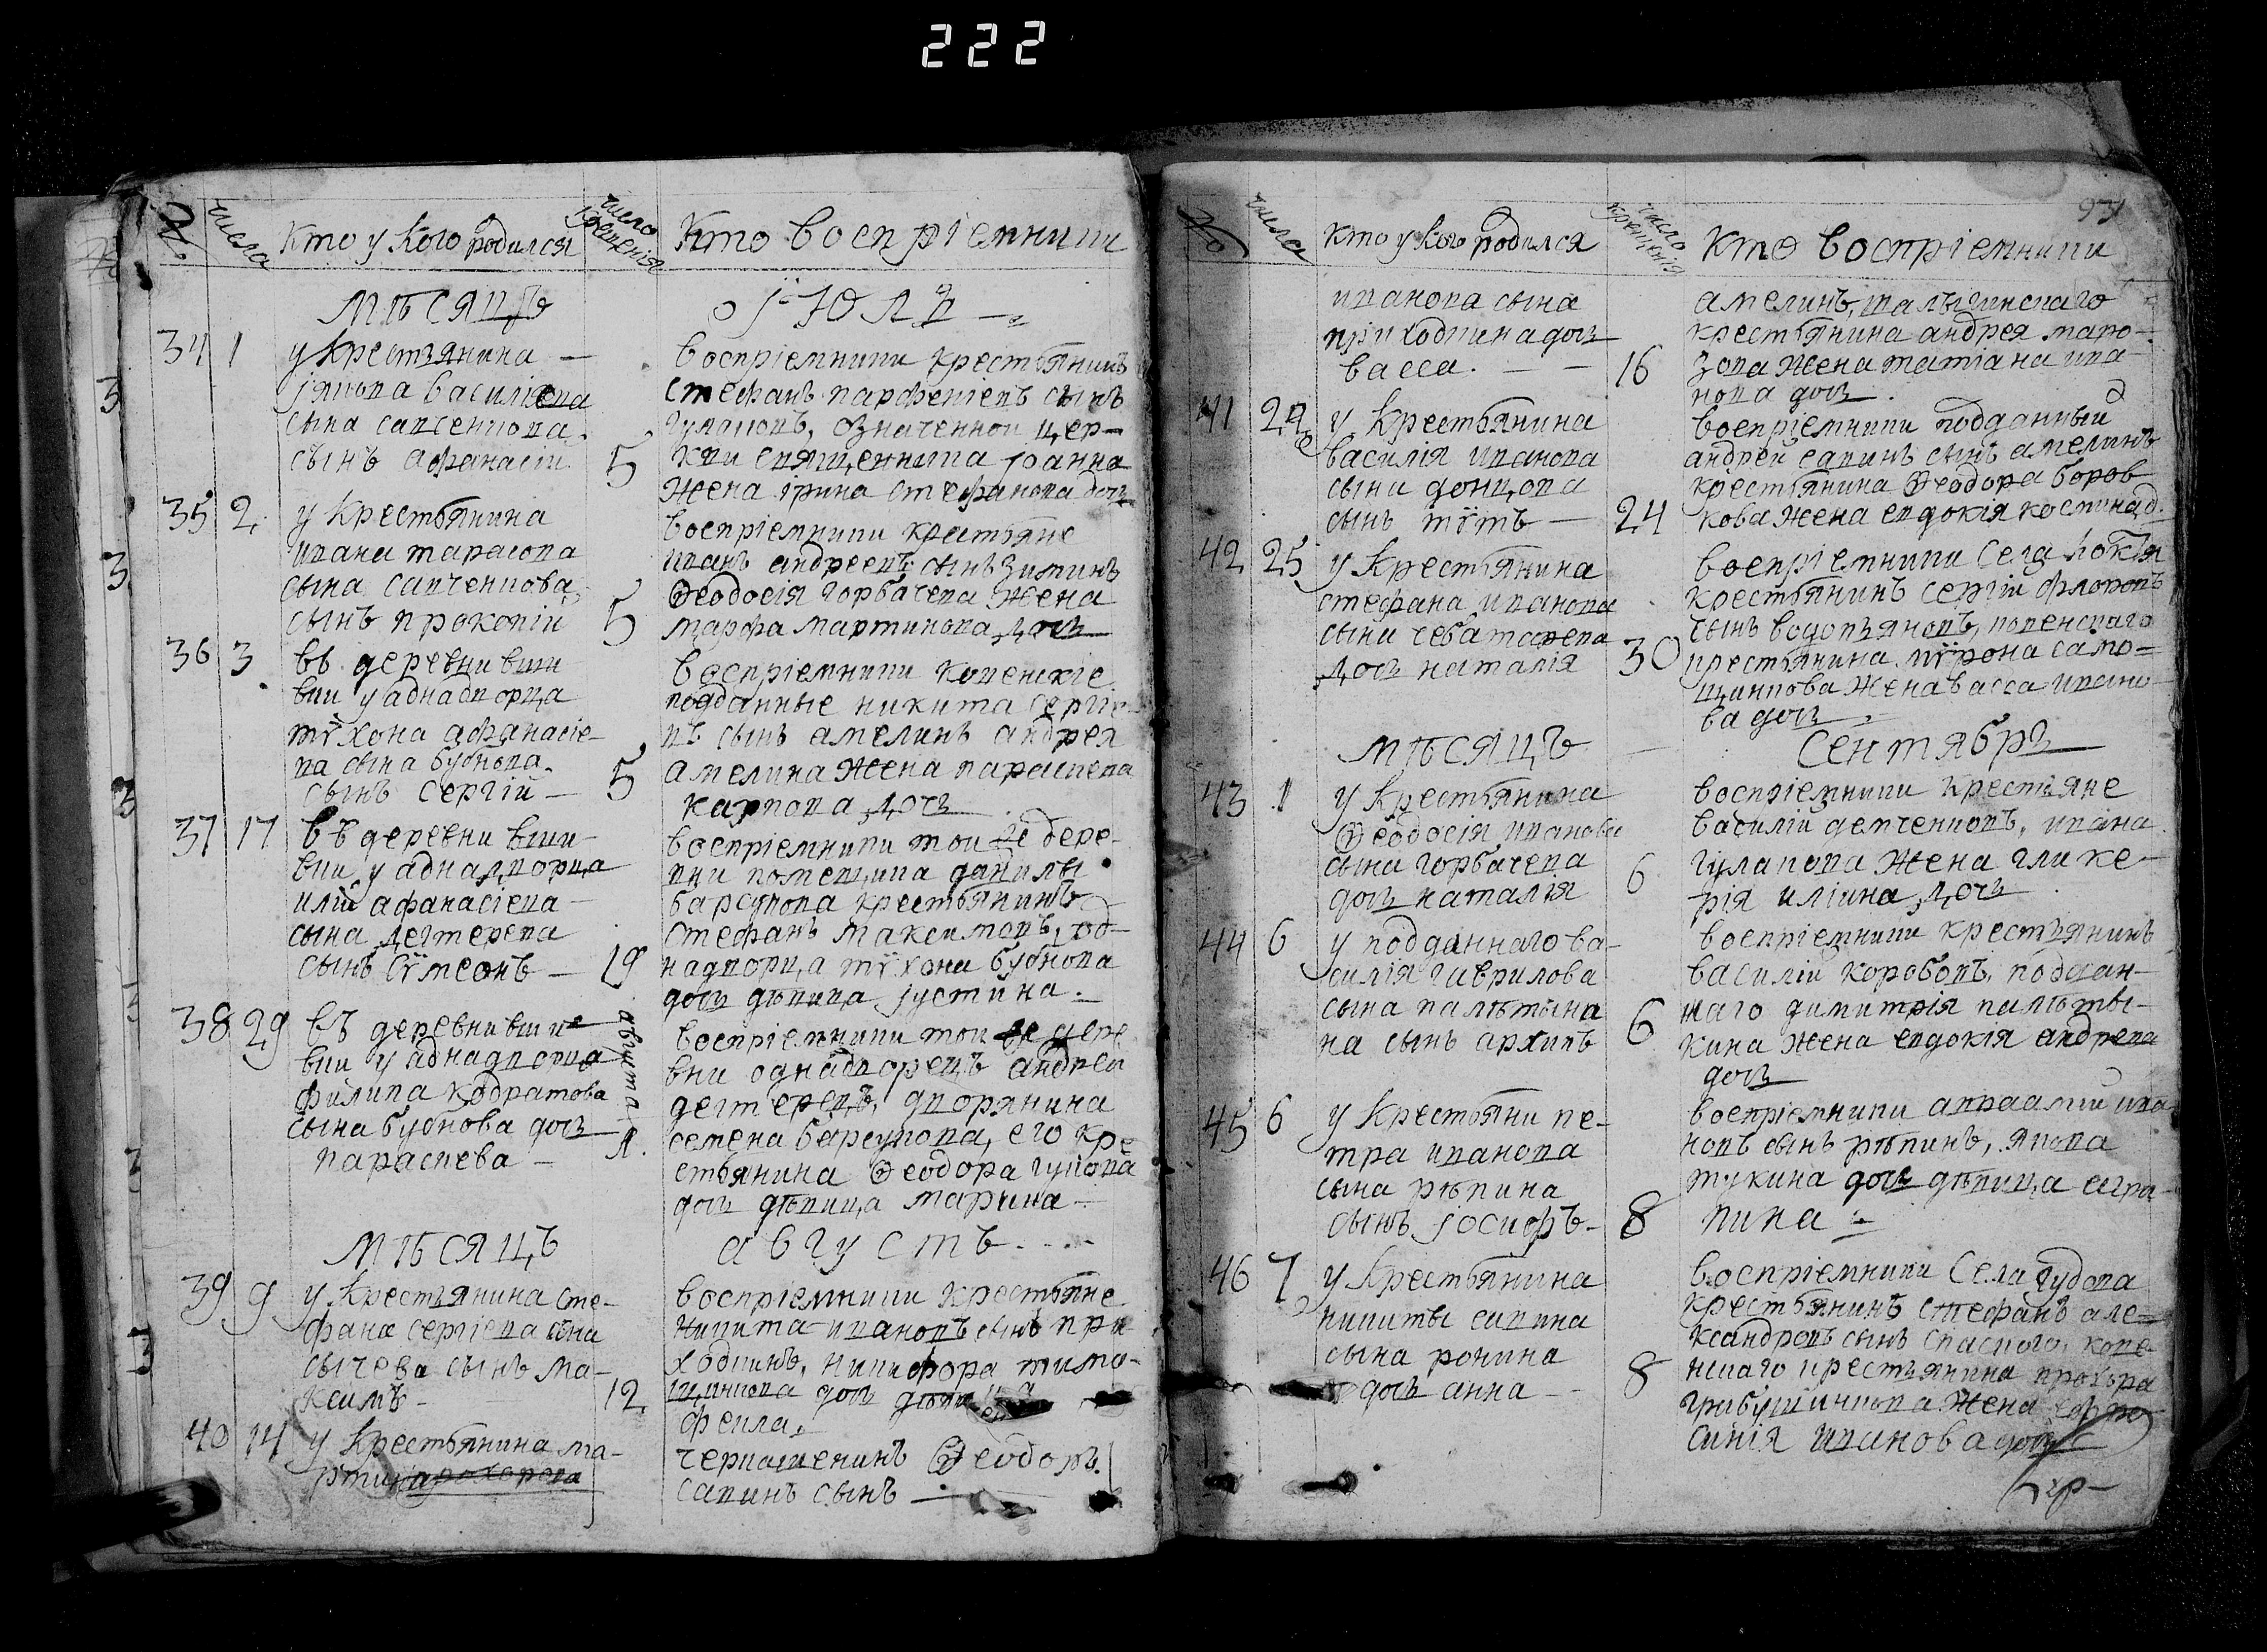 222
№
числа
кто у кого родился
число крещенія
Кто воспріемники
мѣсяцъ
іюлъ
34
1
у крестьянина
іякова василіева
сына савченкова
сынъ афанасіи
5
воспріемники крестьянинъ
стефанъ парфеніевъ сынъ
означенной цер-
кви священника іоанна
жена ірина стефанова дочь
35
2
у крестьянина
ивана тарасова
сына савченкова
сынъ прокопіи
5
воспріемники крестьяне
иванъ андреевъ сынъ зиминъ
ѳеодосія горбачева жена
марфа мартинова дочь
36
3
въ деревни вши
вки у аднадворца
тѵхона афанасіе-
ва сына бубнова
сынъ сергій
5
воспріемники
подданные никита сергіе-
въ сынъ амелинъ андрея
амелина жена параскева
карпова дочь
37
17
въ деревни вши-
вки у аднадворца
иліи афанасіева
сына дегтерева
сынъ сѵмеонъ
19
воспріемники той же дере-
вни помещика данилы
барсукова крестьянинъ
стефанъ максимовъ, од-
надворца тѵхона бубнова
дочь дѣвица іустина.
38
29
въ деревни вши
вки у аднадворца
филипа кодратова
сына бубнова дочь
параскева
августа
1.
воспріемники той же дере
вни однадворецъ андреи
дегтеревъ, дворянина
семена барсукова, его кре
стьянина ѳеодора гукова
дочь дѣвица марина
мѣсяцъ
августъ
39
9
у крестьянина сте-
фана сергіева сына
сычева сынъ ма-
ксимъ
12
воспріемники крестьяне
никита ивановъ сынъ при
ходкинъ, никифора тимо-
щинкова дочь
фекла.
40
14
у крестьянина ма-
ртина прохорова
черкашенинъ ѳеодоръ
савинъ сынъ
№
числа
кто у кого родился
число крещенія
кто воспріемники
иванова сына
приходкина дочь
васса.
16
амелинъ,
крестьянина андрея маро-
зова жена татіана ива-
нова дочь.
41
22
у крестьянина
василія иванова
сына донцова
сынъ тѵтъ
24
воспріемники подданный
андрей савинъ сынъ амелинъ
крестьянина ѳеодора боров
кова жена евдокія костина д.
42
25
у крестьянина
стефана иванова
сына чеботарева
дочь наталія
30
воспріемники села локтя
крестьянинъ сергій флоровъ
сынъ водопъяновъ, копенскаго
крестьянина мѵрона само-
щинкова жена васса ивано
ва дочь.
мѣсяцъ
сентябрь
43
1
у крестьянина
ѳеодосія иванова
сына горбачева
дочь наталія
6
воспріемники крестьяне
василій демченковъ, ивана
гулакова жена глике-
рія иліина дочь
44
6
у подданнаго ва-
силія гаврилова
сына палѣтыки
на сынъ архипъ
6
воспріемники крестьянинъ
василій коробовъ, поддан-
наго димитрія палѣты-
кина жена евдокія андреева
дочь
45
6
у крестьяни пе-
тра иванова
сына рѣпина
сынъ іосифъ
8
воспріемники авраамій ива
новъ сынъ рѣпинъ, якова
тукина дочь дѣвица агра-
пина
46
7
у крестьянина
никиты савина
сына ронина
дочь анна
8
воспріемники села гудова
крестьянинъ стефанъ але-
ксандровъ сынъ спаского, копе-
нскаго крестьянина прохора
жена евфро
синія иванова дочь